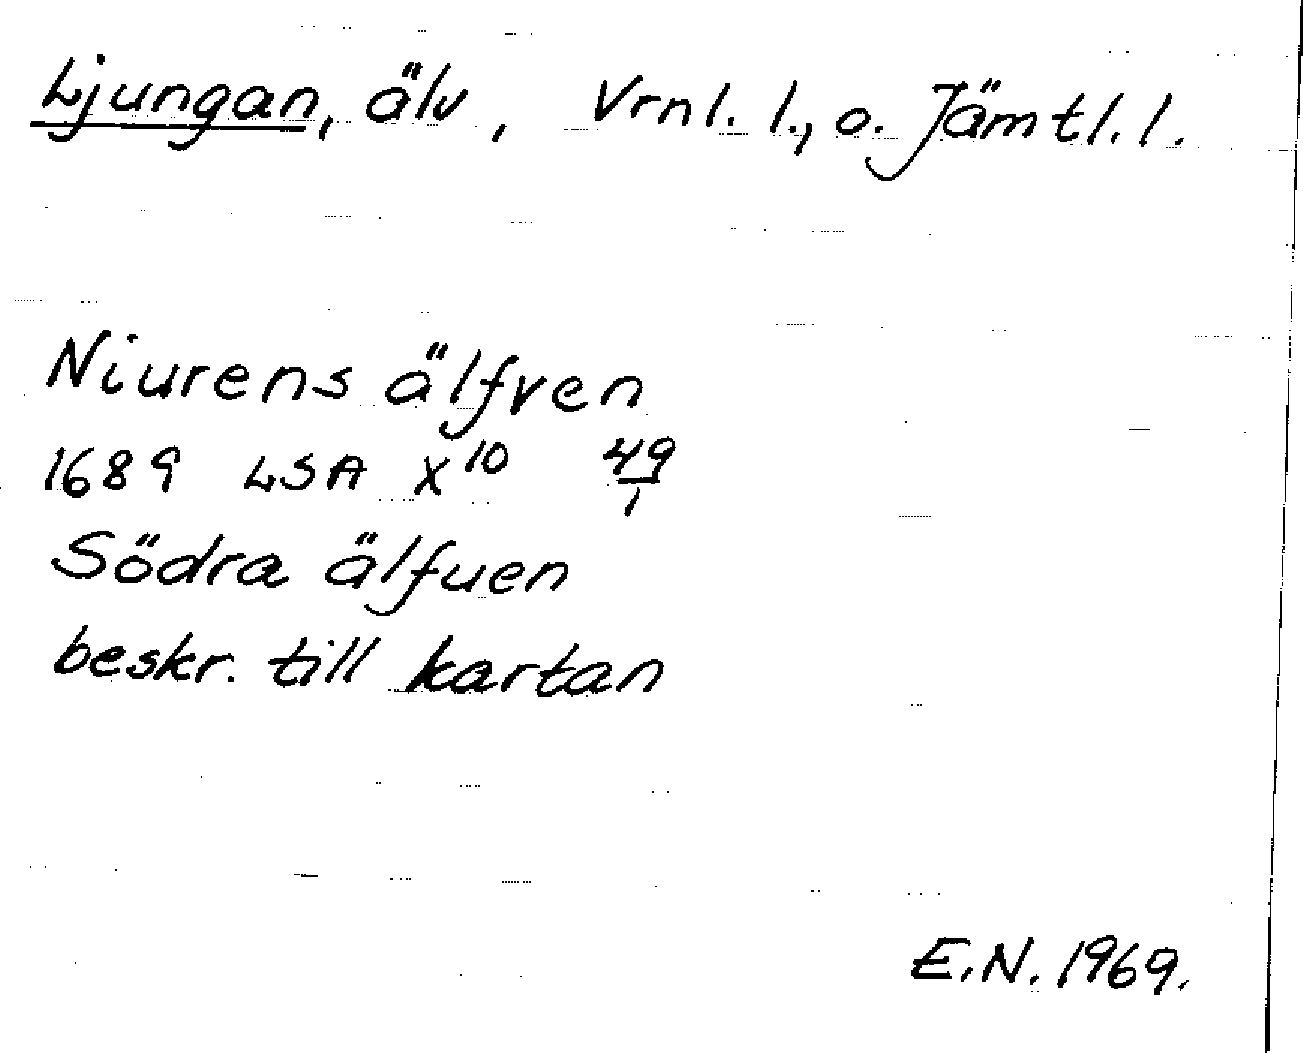 Ljungan, älv, Vrnl. l., o. Jämtl. l.
Niurens älfven
1689 LSA X¹⁰ 49/1
Södra älfuen
beskr. till kartan
E.N. 1969.